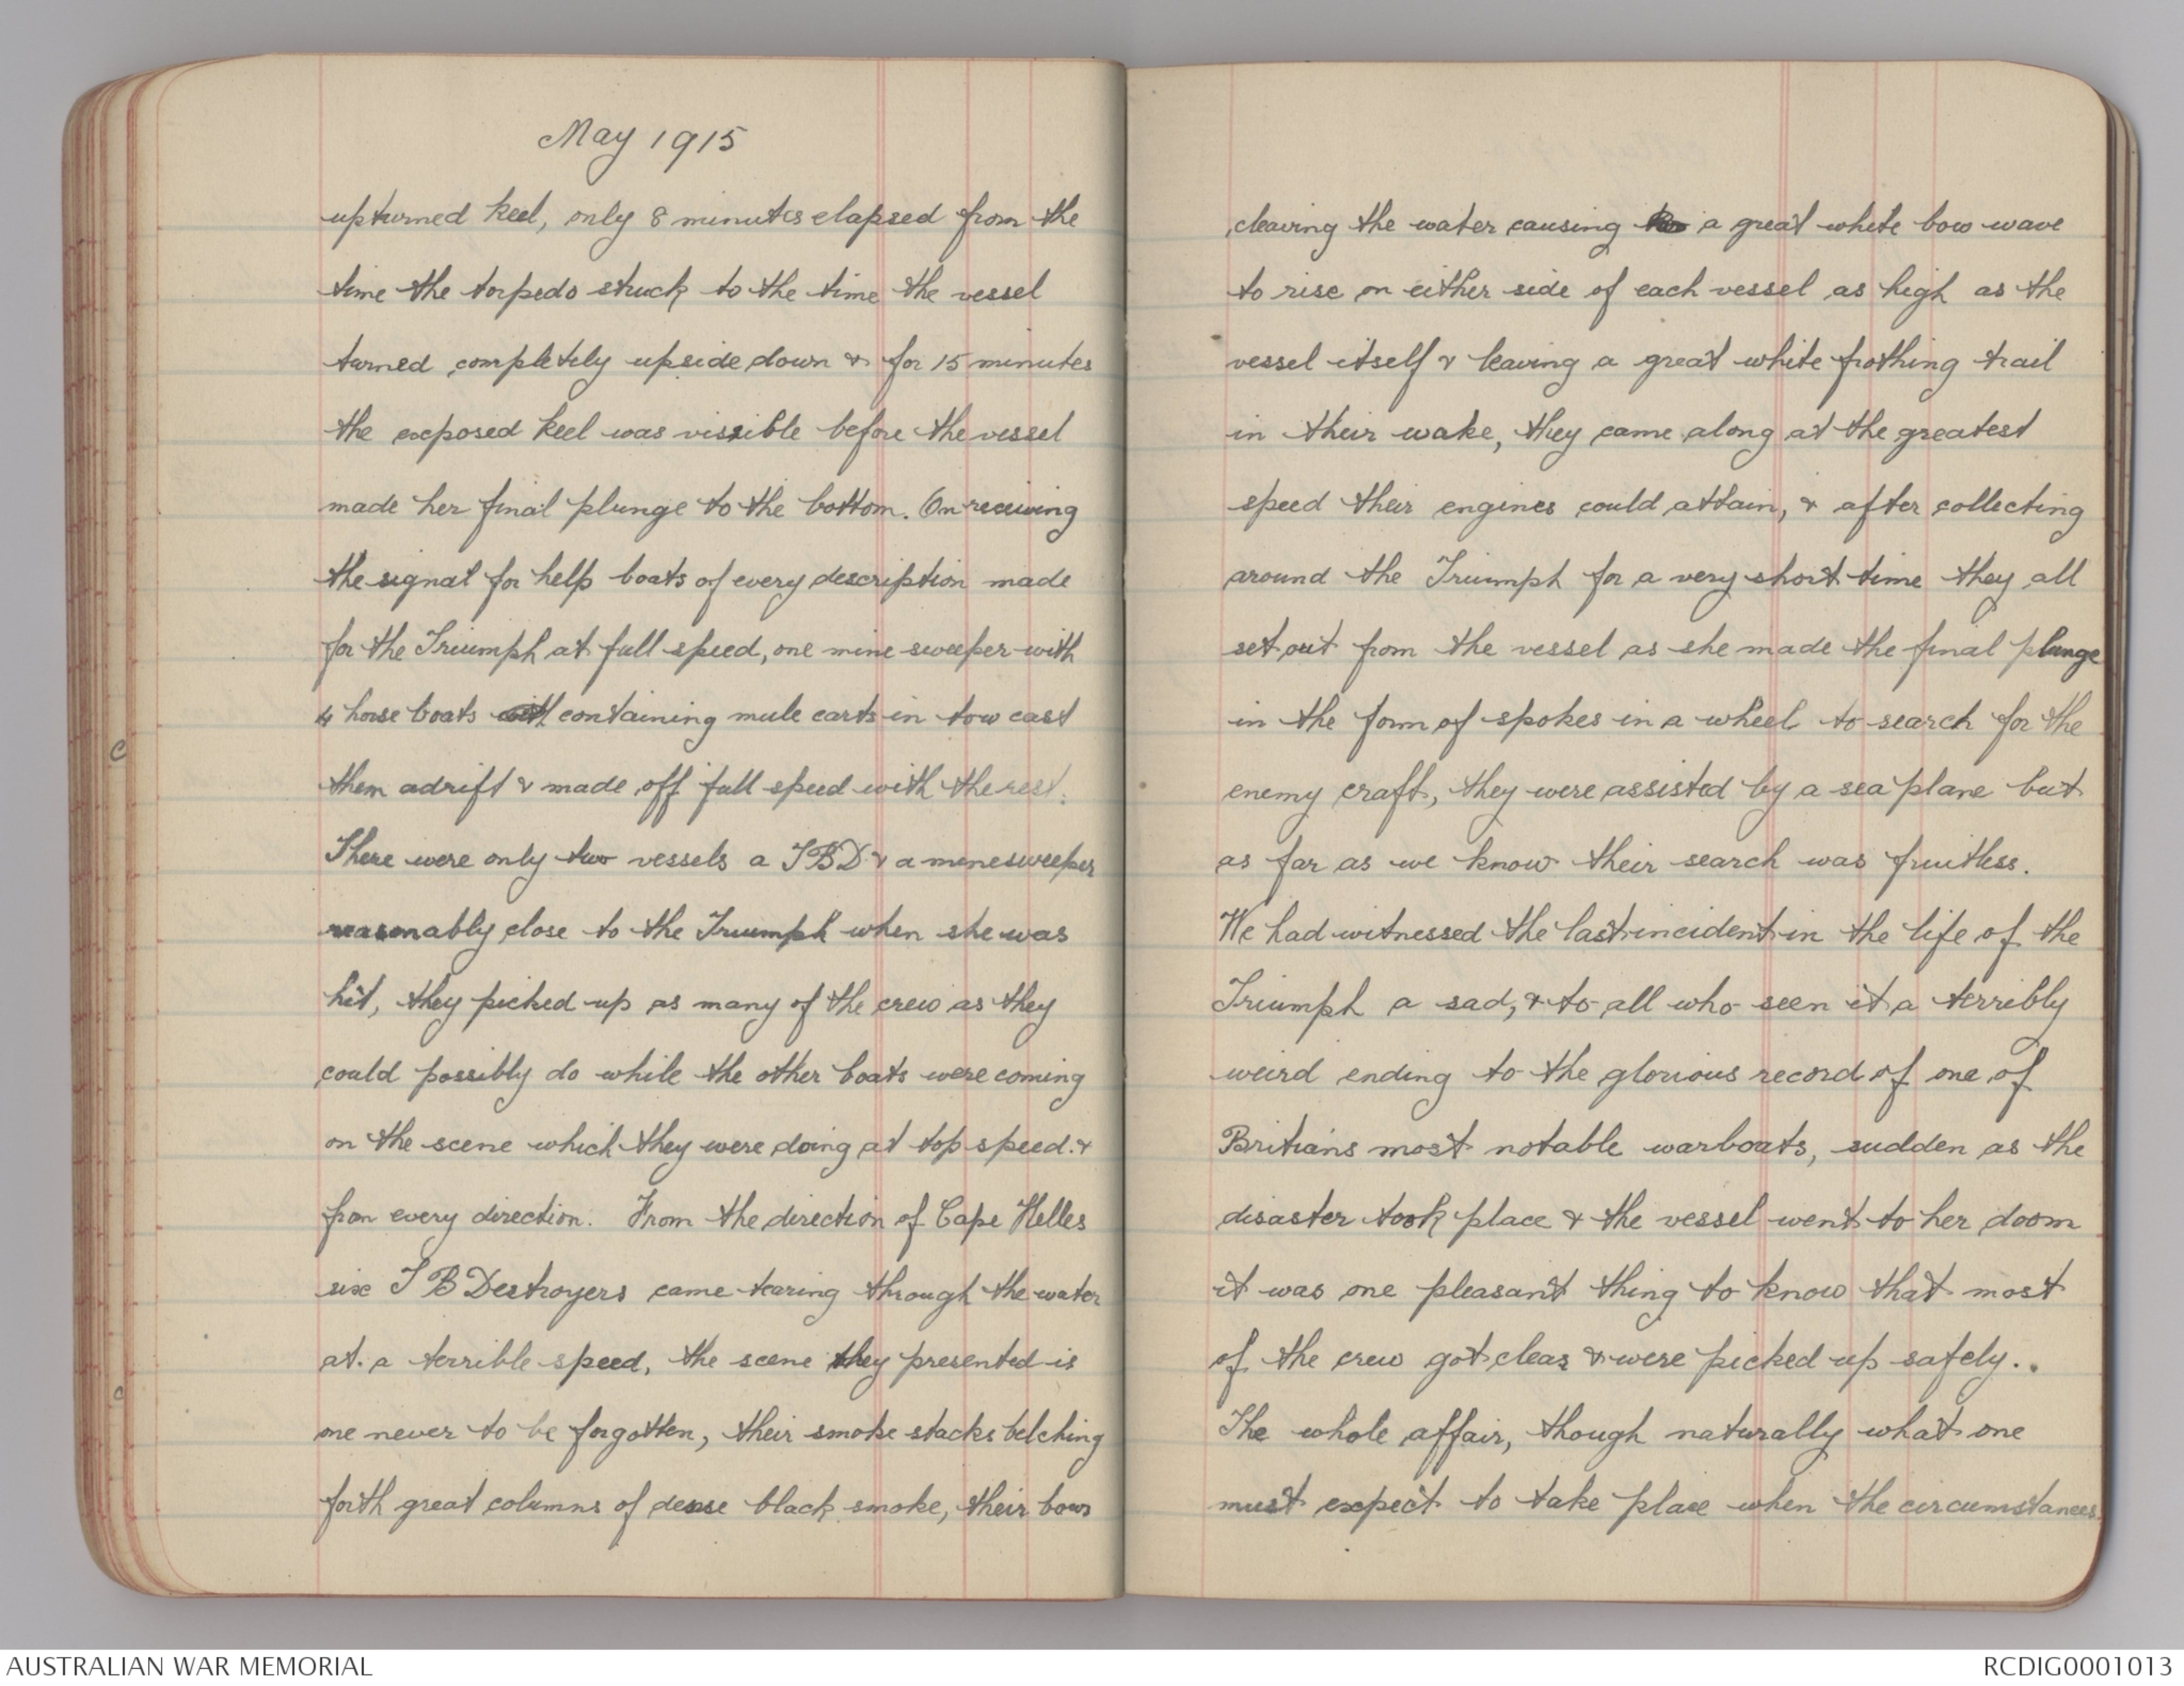 May 1915
upturned keel, only 8 minutes elapsed from the
time the torpedo struck to the time the vessel
turned completely upside down & for 15 minutes
the exposed keel was vissible before the vessel
made her final plunge to the bottom. On receiving
the signal for help boats of every description made
for the Triumph at full speed, one mine sweeper with
4 horse boats with containing mule carts in tow cast
them adrift & made off full speed with the rest.
There were only two vessels a TBD & a minesweeper
reasonably close to the Triumph when she was
hit, they picked up as many of the crew as they
could possibly do while the other boats were coming
on the scene which they were doing at top speed. &
from every direction. From the direction of Cape Helles
six T B Destroyers came tearing through the water
at a terrible speed, the scene they presented is
one never to be forgotten, their smoke stacks belching
forth great columns of dense black smoke, their bows
cleaving the water causing a great white bow wave
to rise on either side of each vessel as high as the
vessel itself & leaving a great white frothing trail
in their wake, they came along at the greatest
speed their engines could attain, & after collecting
around the Triumph for a very short time they all
set out from the vessel as she made the final plunge
in the form of spokes in a wheel to search for the
enemy craft, they were assisted by a sea plane but
as far as we know their search was fruitless.
We had witnessed the last incident in the life of the
Triumph a sad, & to all who seen it a terribly
weird ending to the glorious record of one of
Britians most notable warboats, sudden as the
disaster took place & the vessel went to her doom
it was one pleasant thing to know that most
of the crew got clear & were picked up safely..
The whole affair, though naturally what one
must expect to take place when the circumstances
AUSTRALIAN WAR MEMORIAL
RCDIG0001013